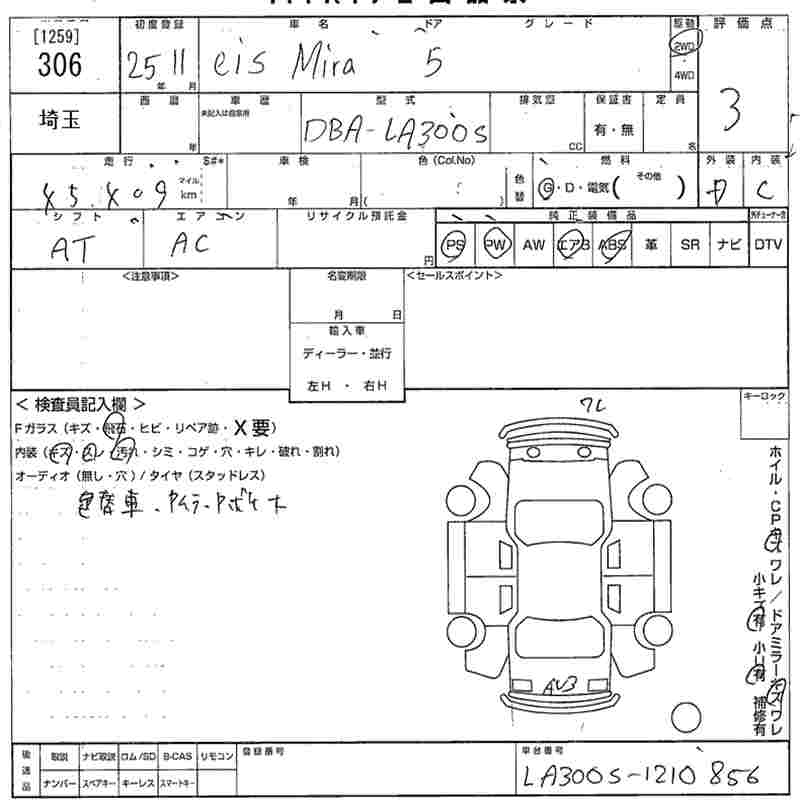 初度登録 車名 ドア グレード 駆動 評価点
[1259]
306 25 11 eis Mira 5 2WD 4WD 3
年 月
埼玉 西暦 年 車歴 未記入は自家用 型式 DBA-LA300S 排気量 CC 保証書 有・無 定員 名
走行 $#* マイル km 車検 年 月 色(Col.No) ( ) 色替 燃料 G・D・電気( その他 ) 外装 内装 C
シフト AT エアコン AC リサイクル預託金 円 純正装備品
PS PW AW エアB ABS 革 SR ナビ DTV
<注意事項> 名変期限 月 日 <セールスポイント>
輸入車
ディーラー・並行
左H ・ 右H
<検査員記入欄> キーロック
Fガラス (キズ・飛石・ヒビ・リペア跡・X要)
内装 (キズ・スレ・汚れ・シミ・コゲ・穴・キレ・破れ・割れ)
オーディオ (無し・穴) / タイヤ (スタッドレス)
色替車、
ホイル・CPキズワレ/ドアミラーキズワレ
小キズ有 小U有 補修有
AU3
後送品 取説 ナビ取説 ロム/SD B-CAS リモコン 登録番号 車台番号
ナンバー スペアキー キーレス スマートキー LA300S-1210856